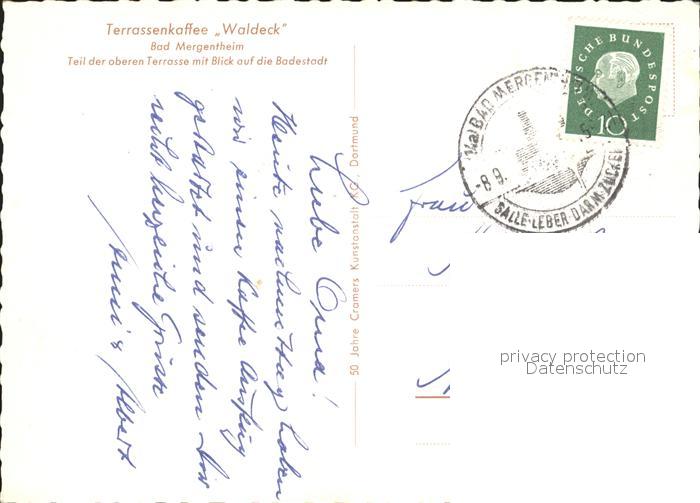 Terrassenkaffee „Waldeck"
Bad Mergentheim
Teil der oberen Terrasse mit Blick auf die Badestadt
Liebe Oma!
Heute nachmittag haben
wir einen Kaffe Ausflug
gestartet und senden Dir
recht herzliche Grüsse
Anni & Albert
50 Jahre Cramers Kunstanstalt KG., Dortmund
DEUTSCHE BUNDESPOST
10
BAD MERGENTHEIM
-8.9.
GALLE·LEBER·DARM·ZUCKER
Frau
privacy protection
Datenschutz